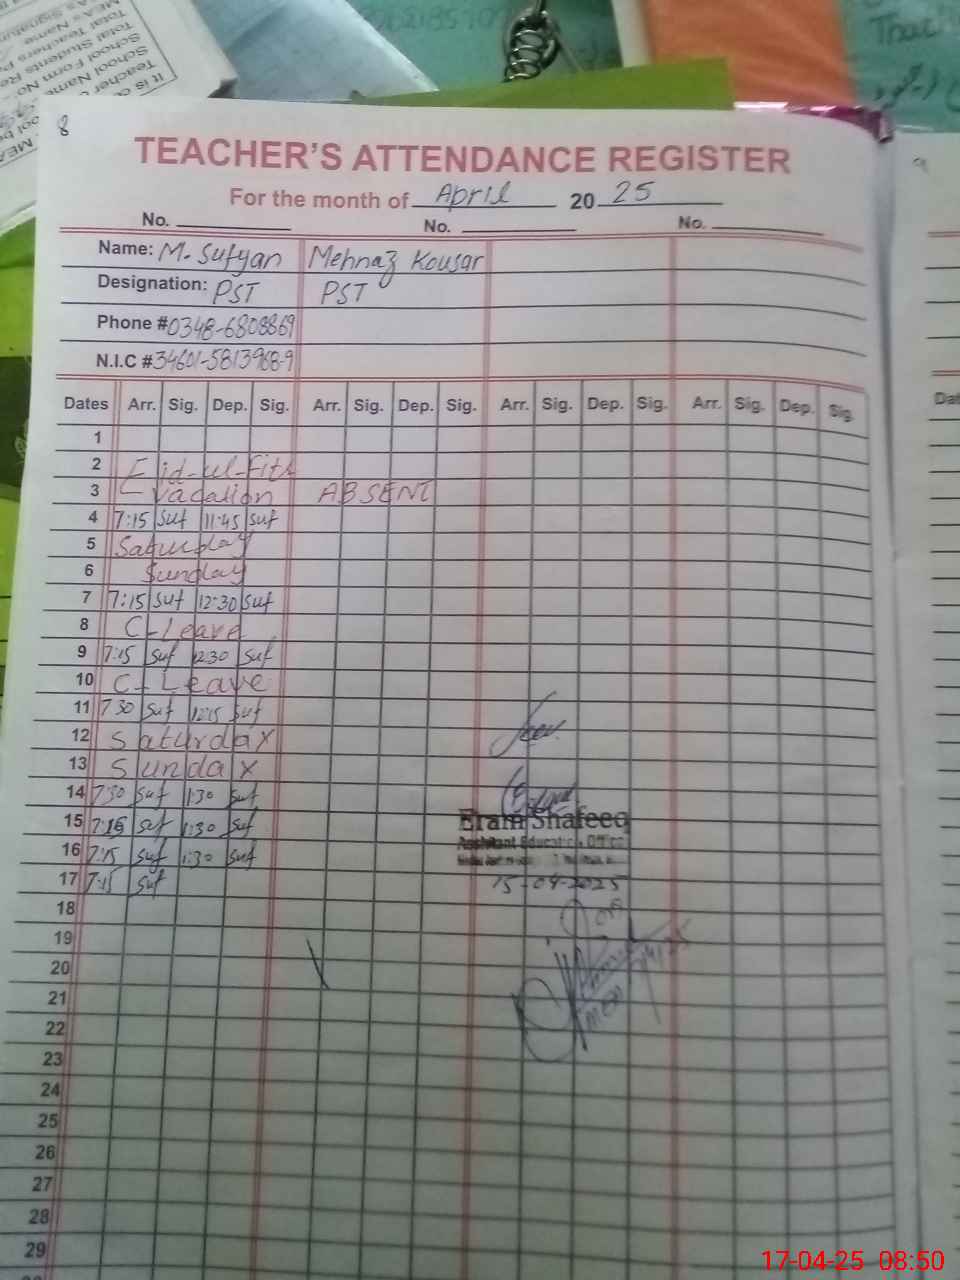 8
TEACHER'S ATTENDANCE REGISTER
For the month of April 2025
No. No. No.
Name: M. Sufyan Mehnaz Kousar
Designation: PST PST
Phone # 0348-6808869
N.I.C # 34601-5813968-9
Dates Arr. Sig. Dep. Sig. Arr. Sig. Dep. Sig. Arr. Sig. Dep. Sig. Arr. Sig. Dep. Sig.
1
2 Eid-ul-Fitr
3 vacation ABSENT
4 7:15 Suf 11:45 Suf
5 Saturday
6 Sunday
7 7:15 Suf 12:30 Suf
8 C-Leave
9 7:15 Suf 12:30 Suf
10 C-Leave
11 7:30 Suf 12:15 Suf
12 Saturday
13 Sunday
14 7:30 Suf 1:30 Suf
15 7:15 Suf 1:30 Suf
Eram Shafeeq
Assistant Education Officer
16 7:15 Suf 1:30 Suf
17 7:15 Suf
15-04-2025
18
19
20
21
22
23
24
25
26
27
28
29
17-04-25 08:50